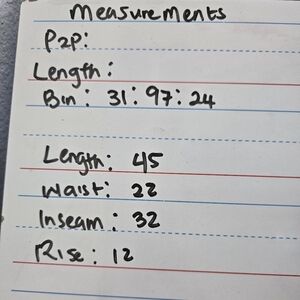 Measurements
P2P:
Length:
Bin: 31:97:24
Length: 45
Waist: 22
Inseam: 32
Rise: 12